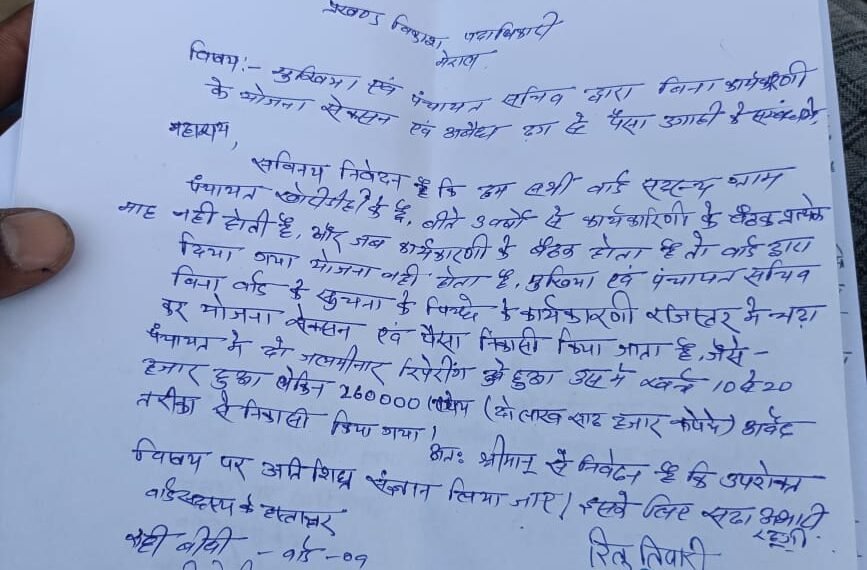 प्रखण्ड विकास पदाधिकारी
मेराल
विषय:- मुखिया एवं पंचायत सचिव द्वारा बिना कार्यकारणी
के योजना सेक्सन एवं अवैध ढंग से पैसा उगाही के सम्बंध में,
महाशय,
सविनय निवेदन है कि हम सभी वार्ड सदस्य ग्राम
पंचायत के है, बीते 3 वर्षों से कार्यकारिणी के बैठक प्रत्येक
माह नही होती है, और जब कार्यकारणी के बैठक होता है तो वार्ड द्वारा
दिया गया योजना नही होता है, मुखिया एवं पंचायत सचिव
बिना वार्ड के सुचना के के कार्यकारणी रजिस्टर में चढ़ा
कर योजना सेक्सन एवं पैसा निकासी किया जाता है, जैसे -
पंचायत में दो जलमीनार रिपेरींग हुआ उसमें खर्च 10 से 20
हजार हुआ लेकिन 260000 (दो लाख साठ हजार रूपये) अवैध
तरीका से निकासी किया गया।
अतः श्रीमान् से निवेदन है कि उपरोक्त
विषय पर अति शिघ्र संज्ञान लिया जाए। इसके लिए सदा आभारी
रहूंगी
वार्ड सदस्य के हस्ताक्षर
बीवी - वार्ड - 09
रितु तिवारी